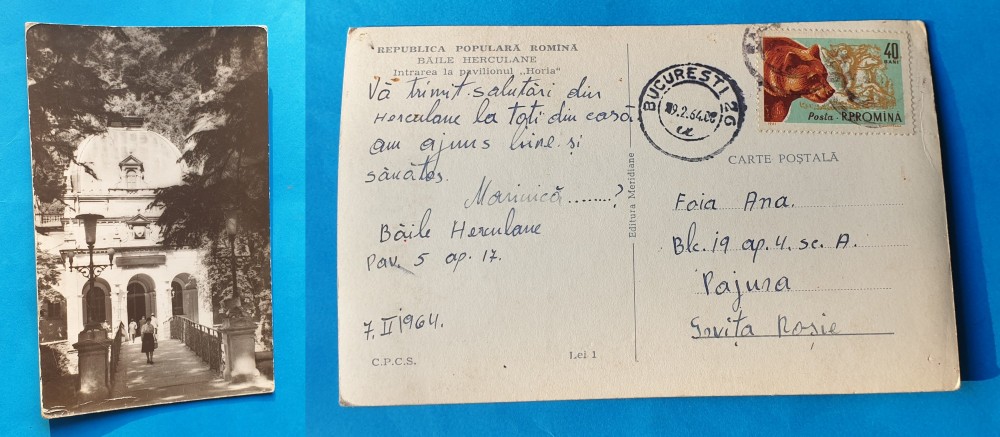 REPUBLICA POPULARĂ ROMÎNĂ
BĂILE HERCULANE
Intrarea la pavilionul „Horia"
Vă trimit salutări din
Herculane la toți din casă
am ajuns bine și
sănătos.
Marinică ........?
Băile Herculane
Pav. 5 ap. 17.
7. II 1964.
C.P.C.S.
Lei 1
Editura Meridiane
BUCUREȘTI 26
9.2.64
40
BANI
Posta R.P.ROMINA
CARTE POȘTALĂ
Foia Ana.
Blc. 19 ap. 4. sc. A.
Pajura
Grivița Roșie